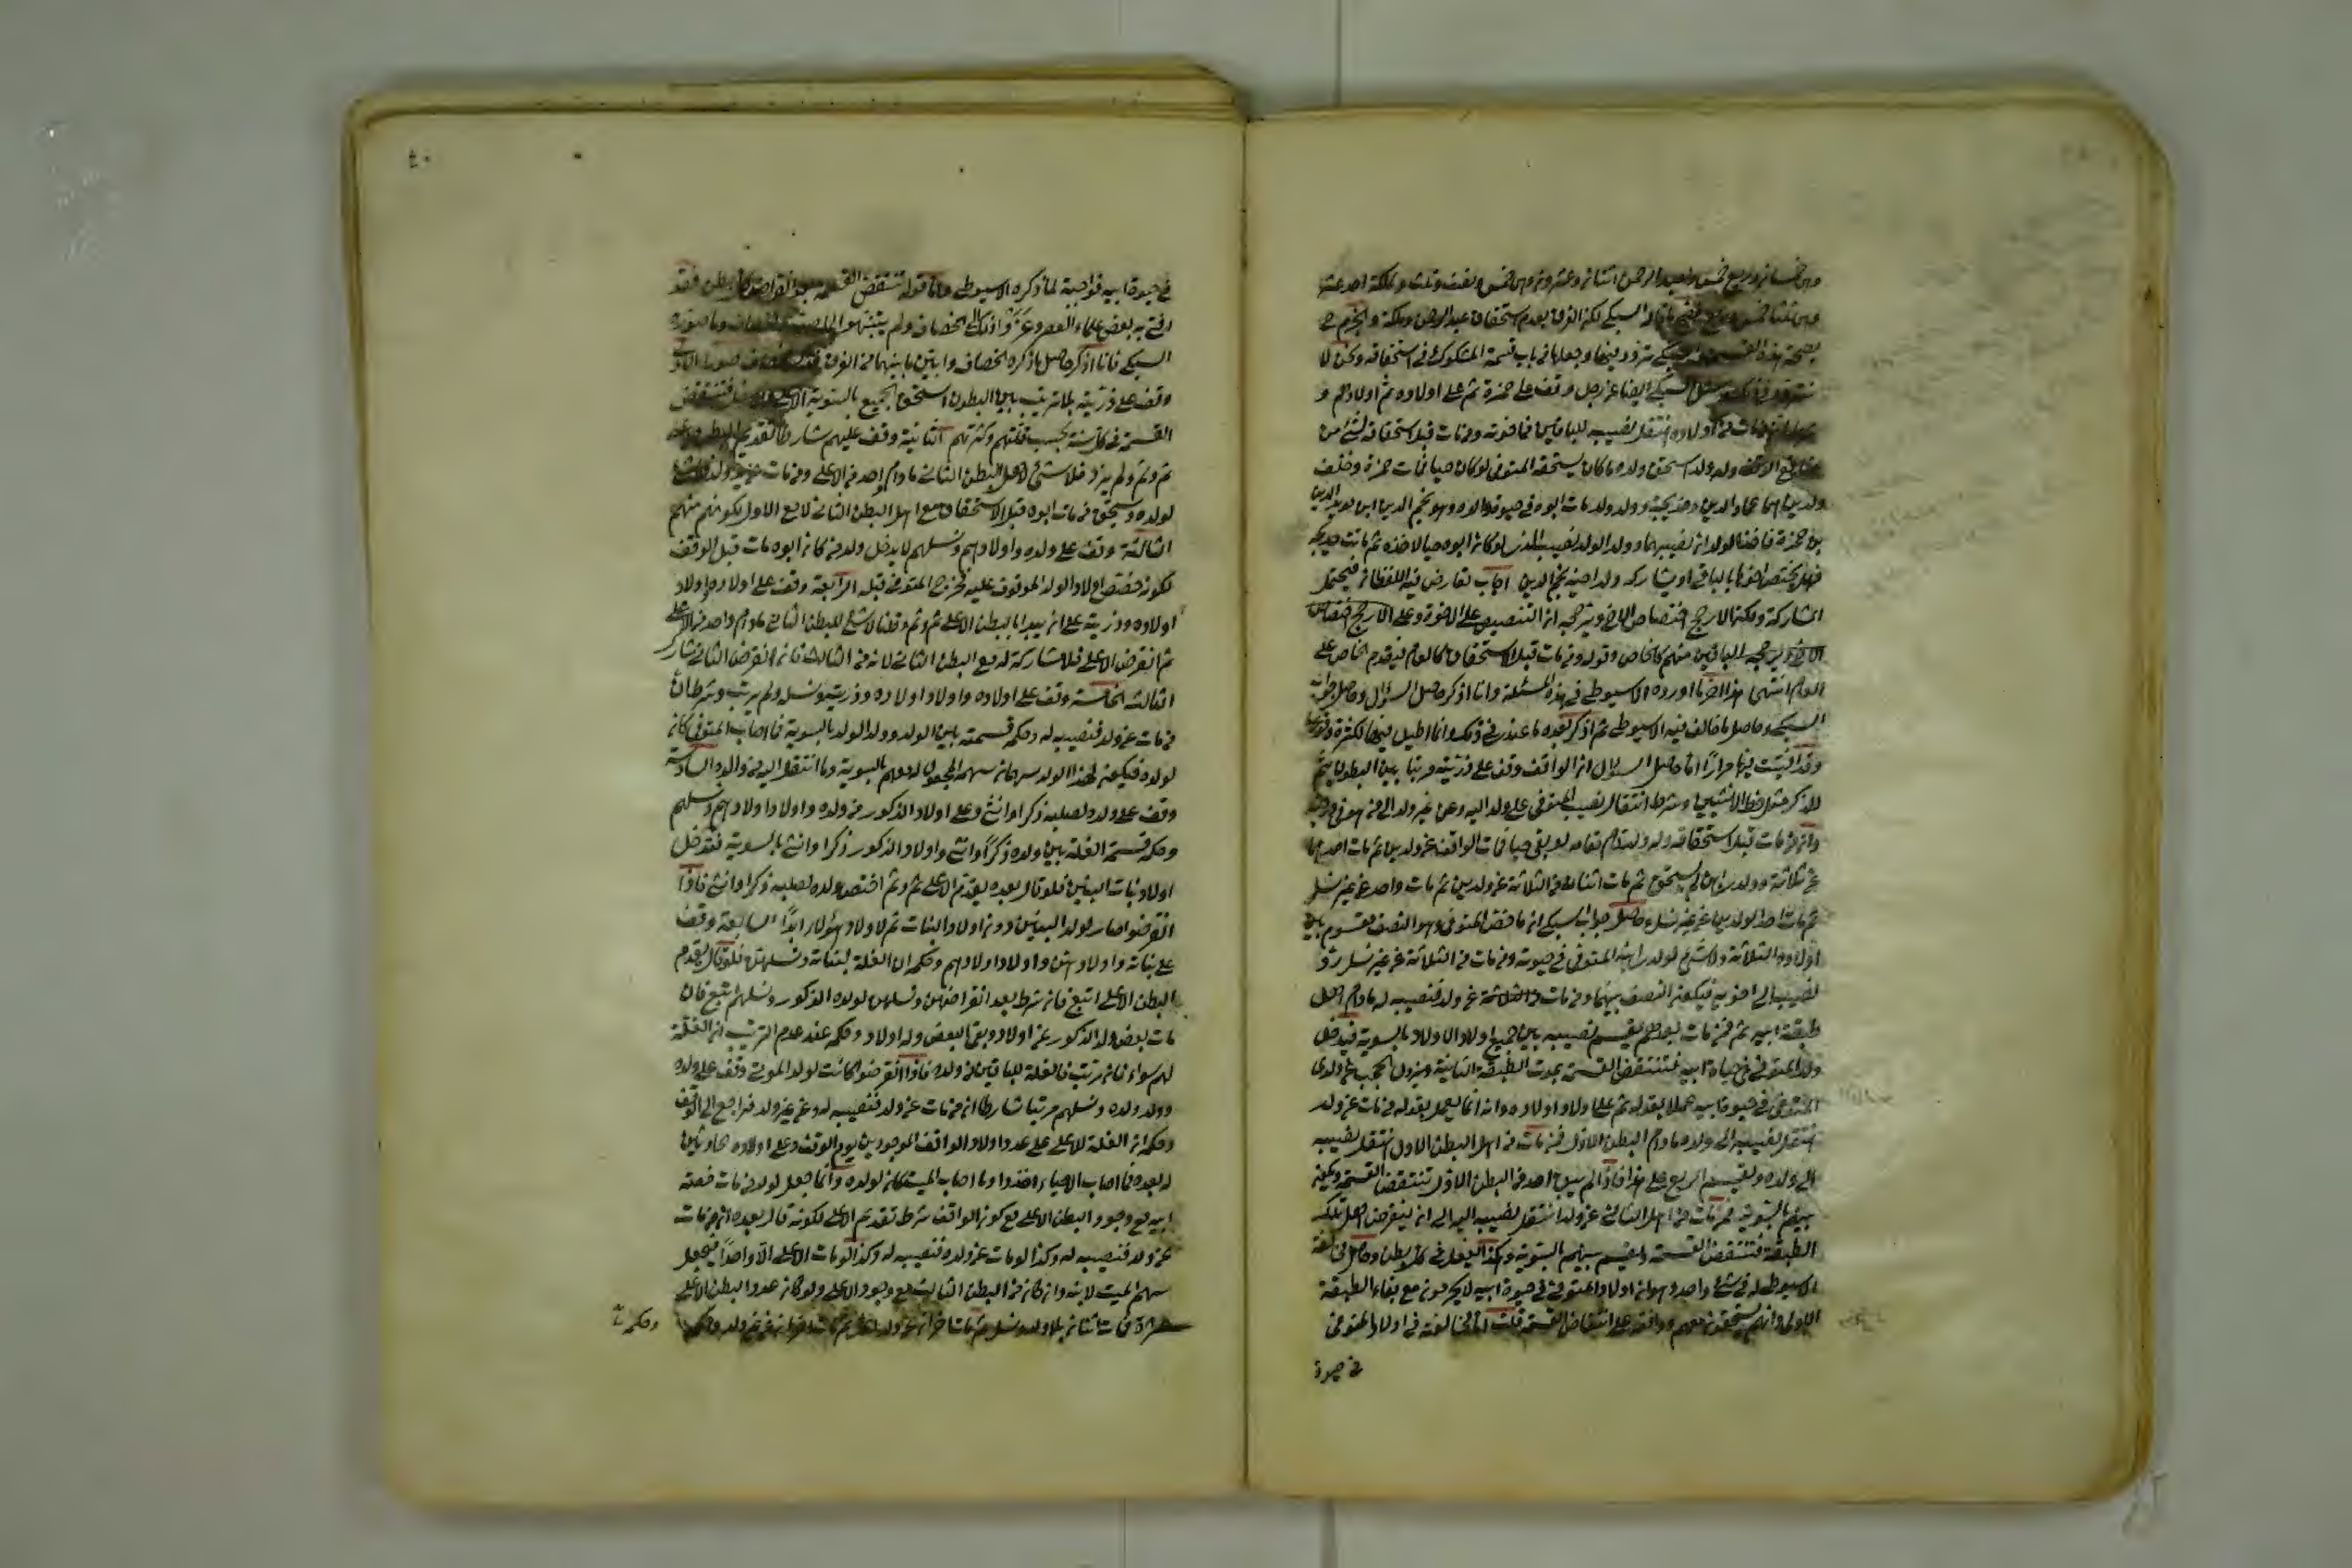 وهي خمسان وربع خمس ولعبد الرحمن اثنان وعشرون وهي خمس ونصف وثلث ولملكة احد عشر
وهي ثلثا خمس السبكي لكن الفرق بعدم استحقاق عبد الرحمن وملكة والجزم ح
بصحة هذه القسمة السبكي تردد فيها وجعلها من باب قسمة المشكوك في استحقاقه ونحن لا
نتردد في ذلك وسئل السبكي ايضا عن رجل وقف على حمزة ثم على اولاده ثم اولادهم و
ان من مات من اولاده انتقل نصيبه للباقين من اخوته ومن مات قبل استحقاقه لشئ من
منافع الوقف وله ولد استحق ولده ما كان يستحقه المتوفى لو كان حيا فمات حمزة وخلف
ولدين هما عماد الدين وخديجة وولد ولد مات ابوه في حيوة والده وهو نجم الدين ابن مويد الدين
بن حمزة فاخذ الولدان نصيبهما وولد الولد النصيب الذي لو كان ابوه حيا لاخذه ثم ماتت خديجة
فهل يختص اخوها بالباقي او يشاركه ولد اخيه نجم الدين اجاب تعارض فيه اللفظان فيحتمل
المشاركة ولكن الارجح اختصاص الاخ ويرجحه ان التنصيص على الاخوة وعلى الارجح اختصاص
الاخ ويرجحه الباقين منهم كالخاص وقوله ومن مات قبل الاستحقاق كالعام فيقدم الخاص على
العام انتهى هذا اخر ما اورده الاسيوطي في هذه المسئلة وانا اذكر حاصل السؤال وحاصل جواب
السبكي وحاصل ما خالف فيه الاسيوطي ثم اذكر بعده ما عندي في ذلك وانما اطيل فيها لكثرة وقوعها
وقد افتيت فيها مرارا اما حاصل السؤال ان الواقف وقف على ذريته مرتبا بين البطون بثم
للذكر مثل حظ الانثيين وشرط انتقال نصيب المتوفى على ولد اليه وعن غير ولد الى من هو في درجته
وان من مات قبل استحقاقه وله ولد قام مقامه لو بقي حيا فمات الواقف عن ولدين ثم مات احدهما
عن ثلاثة وولد ابن لم يستحق ثم مات اثنان من الثلاثة عن ولدين ثم مات واحد عن غير نسل
ثم مات احد الولدين عن غير نسل حاصل جواب السبكي ان ما خص المتوفى وهو النصف مقسوم بين
اولاده الثلاثة ولا شئ لولد ابنه المتوفى في حيوته ومن مات من الثلاثة عن غير نسل رد
نصيبه الى اخويه فيكون النصف بينهما ومن مات من الثلاثة عن ولد فنصيبه له ما دام اهل
طبقة ابيه ثم من مات بعدهم يقسم نصيبه بين جميع اولاد الاولاد بالسوية فيدخل
ولد المتوفى في حياة ابيه فتنتقض القسمة بموت الطبقة الثانية ويزول الحجب عن ولدي
المتوفى في حيوة ابيه عملا بقوله ثم على اولاد اولاده وانه انما يعمل بقوله من مات عن ولد
انتقل نصيبه الى ولده ما دام البطن الاول فمن مات من اهل البطن الاول انتقل نصيبه
الى ولده ويقسم الريع على هذا فاذا لم يبق احد من البطن الاول تنتقض القسمة ويكون
بينهم بالسوية فمن مات من اهل الثاني عن ولد انتقل نصيبه اليه الى ان ينقرض اهل تلك
الطبقة فتنتقض القسمة ويقسم بينهم بالسوية وهكذا يفعل في كل بطن وحاصل مخالفة
الاسيوطي له في شئ واحد وهو ان اولاد المتوفى في حيوة ابيه لا يحرمون مع بقاء الطبقة
الاولى وانهم يستحقون معهم ووافقه على انتقاض القسمة قلت اما مخالفته في اولاد المتوفى
في حيوة
في حيوة ابيه فواجبة لما ذكره الاسيوطي واما قوله تنتقض القسمة بعد انقراض كل بطن فقد
افتى به بعض علماء العصر وعزوا ذلك الى الخصاف ولم يتنبهوا لما صوره الخصاف وما صوره
السبكي فانا اذكر حاصل ما ذكره الخصاف وابين ما بينهما من الفرق فقد ذكر الخصاف صورا الاولى
وقف على ذريته بلا ترتيب بين البطون استحق الجميع بالسوية الاعلى والاسفل فتنتقض
القسمة في كل سنة بحسب قلتهم وكثرتهم الثانية وقف عليهم شارطا تقديم البطن
ثم وثم ولم يزد فلا شئ لاهل البطن الثاني ما دام واحد من الاعلى ومن مات عن ولد فلا شئ
لولده ويستحق من مات ابوه قبل الاستحقاق مع اهل البطن الثاني لا مع الاول لكونه منهم
الثالثة وقف على ولده واولادهم ونسلهم لا يدخل ولد من كان ابوه مات قبل الوقف
لكونه خصص اولاد الولد الموقوف عليه فخرج المتوفى قبله الرابعة وقف على اولاده واولاد
اولاده وذريته على ان يبدأ بالبطن الاعلى ثم وثم وقلنا لا شئ للبطن الثاني ما دام واحد من الاعلى
ثم انقرض الاعلى فلا مشاركة له مع البطن الثاني لانه من الثالث فان انقرض الثاني شارك
الثالث الخامسة وقف على اولاده واولاد اولاده وذريته ونسله ولم يرتب وشرط ان
من مات عن ولد فنصيبه له وحكمه قسمته بين الولد وولد الولد بالسوية فما اصاب المتوفى كان
لولده فيكون لهذا الولد سهمان سهمه المجعول له معهم بالسوية وما انتقل اليه من والده السادسة
وقف على ولده لصلبه ذكرا وانثى وعلى اولاد الذكور من ولده واولاد اولادهم ونسلهم
وحكمه قسمة الغلة بين ولده ذكرا وانثى واولاد الذكور ذكرا وانثى بالسوية فقد دخل
اولاد بنات البنين فلو قال بعده يقدم الاعلى ثم وثم اختص ولده لصلبه ذكرا وانثى فاذا
انقرضوا صار لولد البنين دون اولاد البنات ثم لاولاد هؤلاء ابدا السابعة وقف
على بناته واولادهن واولاد اولادهم وحكمه ان الغلة لبناته ونسلهن فلو قال يقدم
البطن الاعلى اتبع فان شرط بعد انقراضهن ونسلهن لولده الذكور ونسلهم اتبع فان
مات بعض ولد الذكور عن اولاد وبقي البعض وله اولاد وحكمه عند عدم الترتيب ان الغلة
لهم سواء فان رتب فالغلة للباقين من ولده فاذا انقرضوا كانت لولد الموتى وقف على ولده
وولد ولده ونسلهم مرتبا شارطا ان من مات عن ولد فنصيبه له وعن غير ولد فراجع الى الوقف
وحكمه ان الغلة للاعلى على عدد اولاد الواقف الموجودين يوم الوقف وعلى اولاده الحادثين
له بعده فما اصاب الاحياء اخذوا وما اصاب الميت كان لولده وانما جعل لولد من مات حصة
ابيه مع وجود البطن الاعلى مع كون الواقف شرط تقديم الاعلى لكونه قال بعده ان من مات
عن ولد فنصيبه له وكذا لو مات عن ولده فنصيبه له وكذا لو مات الاعلى الا واحدا فيجعل
سهم الميت لابنه وان كان من البطن الثالث مع وجود الاعلى ولو كان عدد البطن الاعلى
عشرة فمات اثنان بلا ولد ونسل ثم مات اخران عن ولد لكل ثم مات اخران عن غير ولد وحكمه